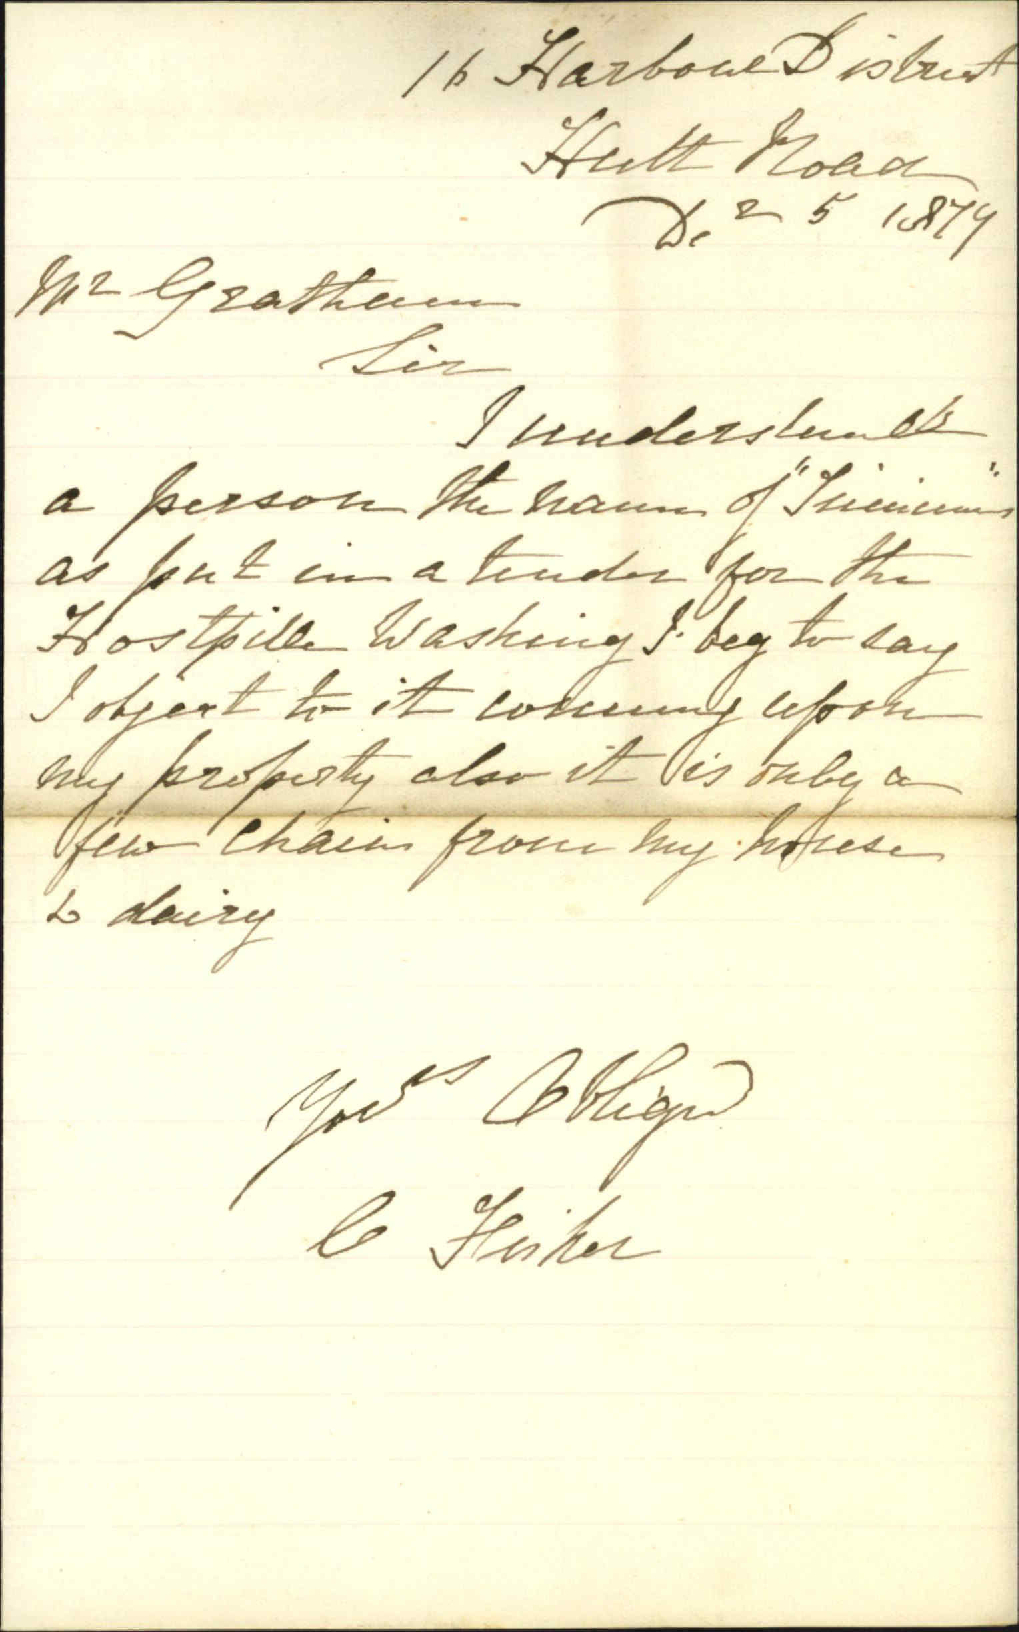 16 Harbour District
Hutt Road
De^c 5 1879
M^r Gratham
Sir
I understand
a person the name of " "
as put in a tender for the
Hostpille Washing I beg to say
I object to it comming upon
my property also it is only a
few chain from my house
& dairy
You^rs Oblig^d
C Fisher